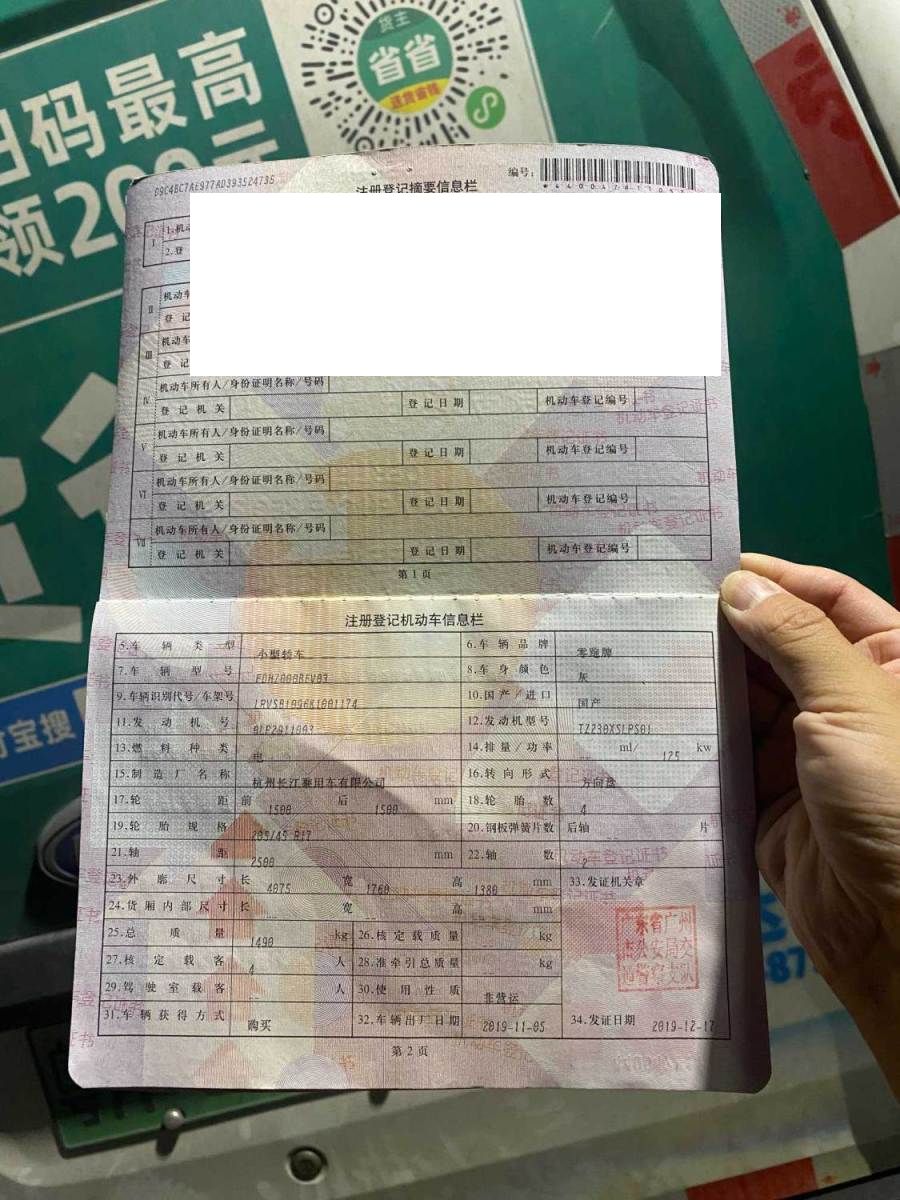 扫码最高
领200元
货主
省省
D9C4BC7AE977AD393524735
注册登记摘要信息栏
编号:
I
1.机动
2.登
II
机动车
登记
III
机动车
登记
IV
机动车所有人/身份证明名称/号码
登记机关 登记日期 机动车登记编号
V
机动车所有人/身份证明名称/号码
登记机关 登记日期 机动车登记编号
VI
机动车所有人/身份证明名称/号码
登记机关 登记日期 机动车登记编号
VII
机动车所有人/身份证明名称/号码
登记机关 登记日期 机动车登记编号
第1页
注册登记机动车信息栏
5.车辆类型 小型轿车 6.车辆品牌 零跑牌
7.车辆型号 8.车身颜色 灰
9.车辆识别代号/车架号 10.国产/进口 国产
11.发动机号 12.发动机型号 TZ230XSLPS01
13.燃料种类 电 14.排量/功率 -- ml/ 125 kw
15.制造厂名称 杭州长江乘用车有限公司 16.转向形式 方向盘
17.轮距 前 1500 后 1500 mm 18.轮胎数 4
19.轮胎规格 205/45 R17 20.钢板弹簧片数 后轴 -- 片
21.轴距 2500 mm 22.轴数 2
23.外廓尺寸 长 4075 宽 1760 高 1380 mm 33.发证机关章
24.货厢内部尺寸 长 -- 宽 -- 高 -- mm
25.总质量 1490 kg 26.核定载质量 -- kg
27.核定载客 4 人 28.准牵引总质量 -- kg
29.驾驶室载客 -- 人 30.使用性质 非营运
31.车辆获得方式 购买 32.车辆出厂日期 2019-11-05 34.发证日期 2019-12-17
广东省广州
市公安局交
通警察支队
第2页
宝搜